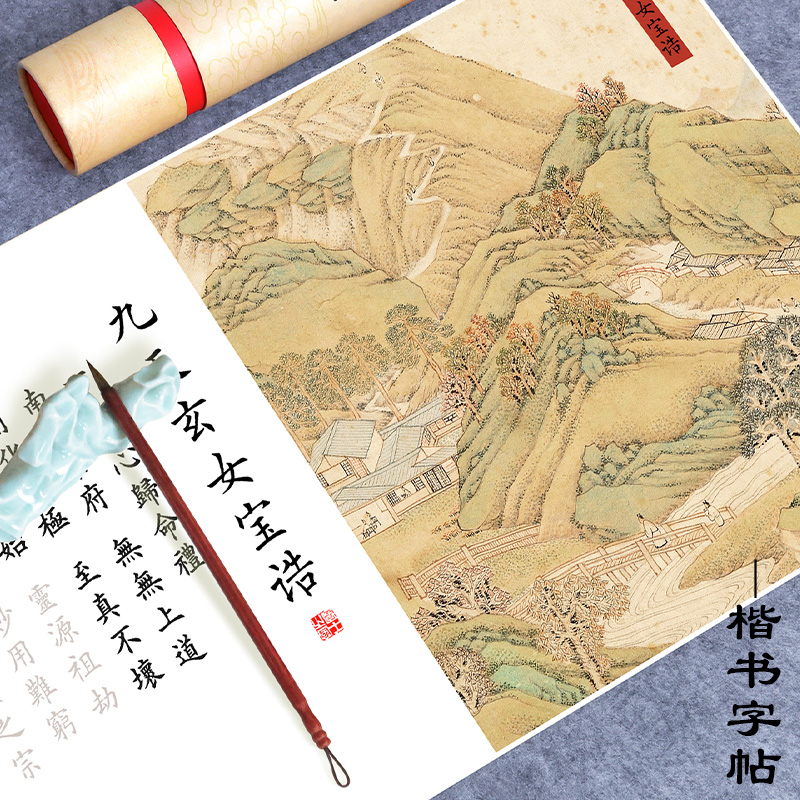 女宝诰
九玄女宝诰
心歸命禮
府 無無上道
南 極 至真不壞
如 靈源祖劫
妙用難窮
之宗
—楷书字帖